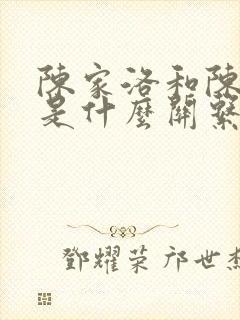 陳家洛和陳
是什麼關繫
鄧耀荣 邝世杰